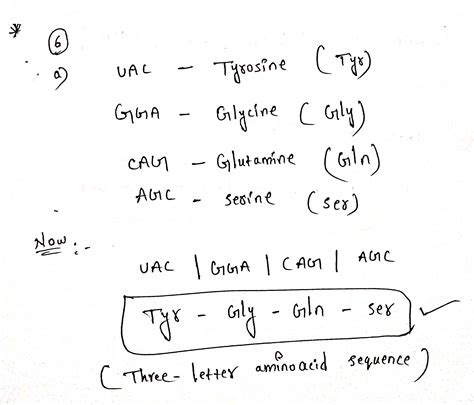 * 6
a) UAC - Tyrosine (Tyr)
GGA - Glycine (Gly)
CAG - Glutamine (Gln)
AGC - serine (ser)
Now :-
UAC | GGA | CAG | AGC
Tyr - Gly - Gln - ser ✓
(Three-letter aminoacid sequence)